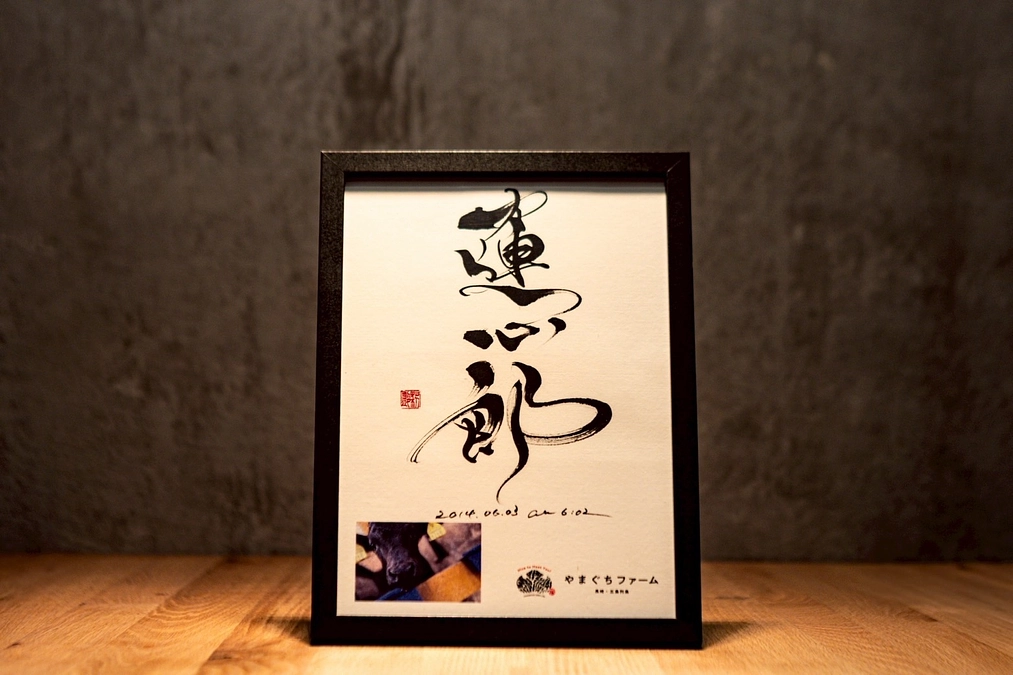 蓮心郎
2014.06.03 am 6:02
やまぐちファーム
長崎・五島列島